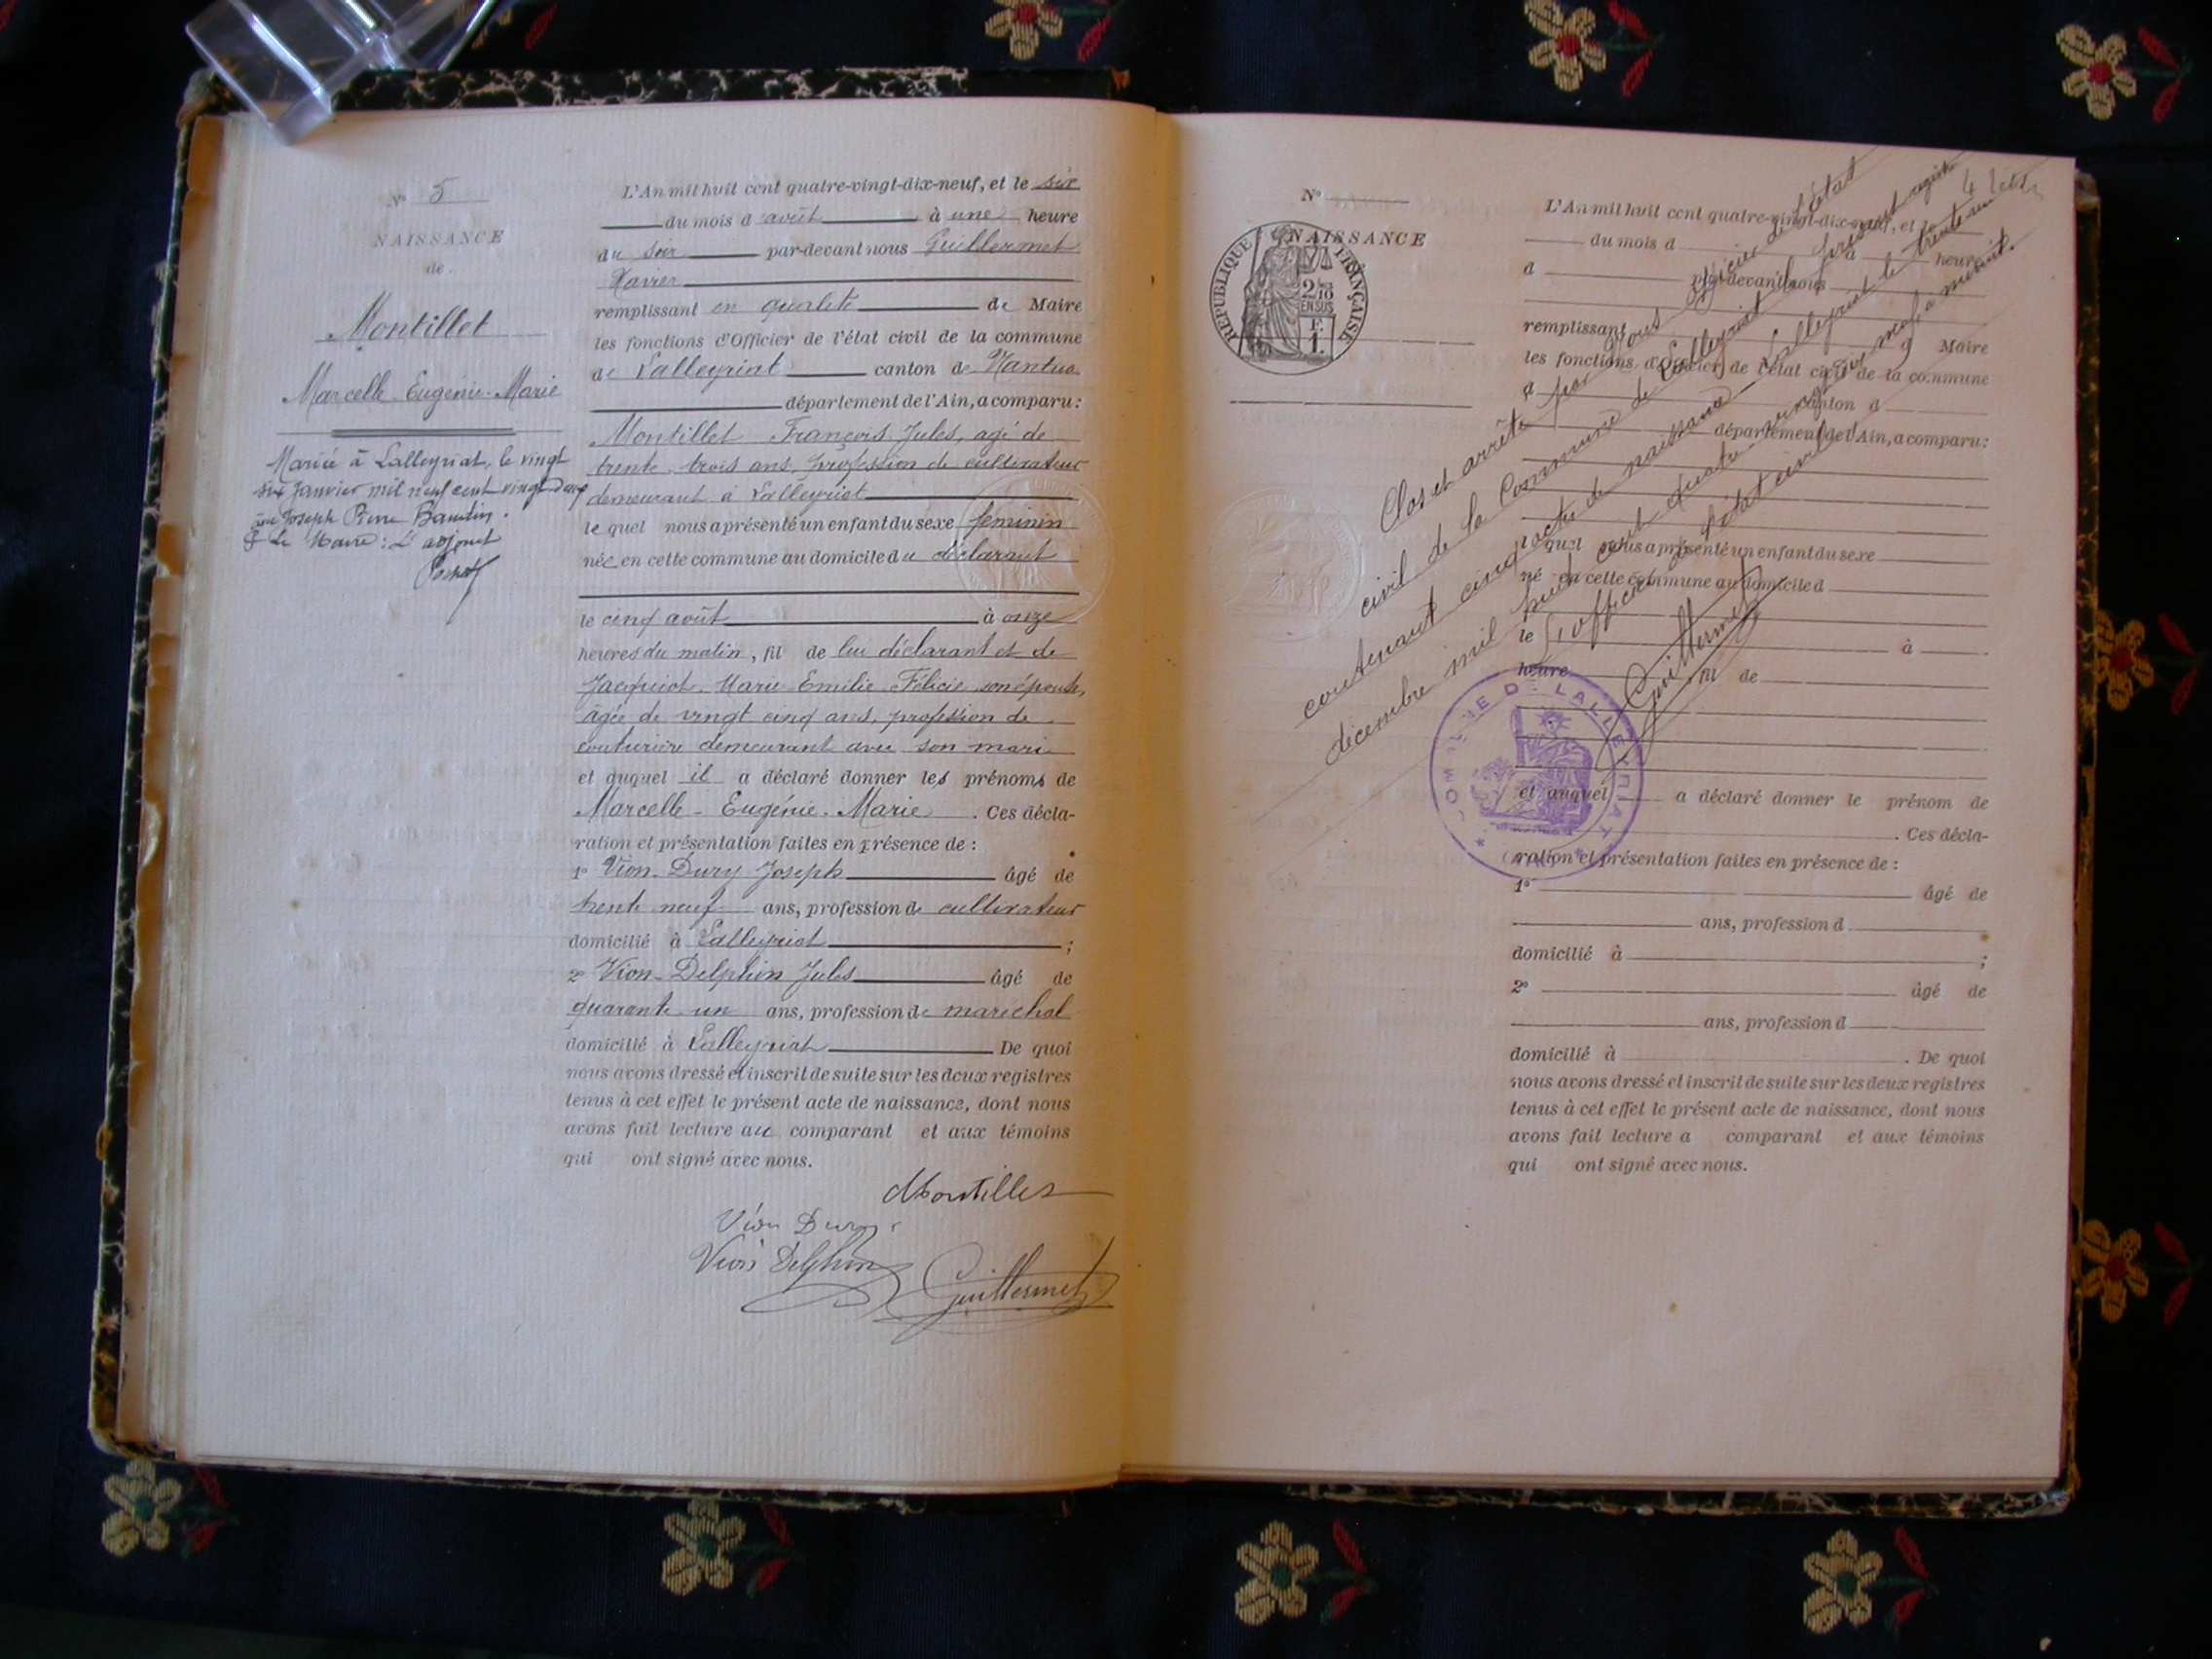 N° 5
NAISSANCE
de
Montillet
Marcelle-Eugénie-Marie
Mariée à Lalleyriat, le vingt
six Janvier mil neuf cent vingt deux
avec Joseph Pierre
Le Maire: L'adjoint
L'An mil huit cent quatre-vingt-dix-neuf, et le six
du mois d'août à une heure
du soir par-devant nous Guillermet
Xavier
remplissant en qualité de Maire
les fonctions d'Officier de l'état civil de la commune
de Lalleyriat canton de Nantua
département de l'Ain, a comparu:
Montillet François Jules, agé de
trente-trois ans, profession de cultivateur
demeurant à Lalleyriat
lequel nous a présenté un enfant du sexe féminin
née en cette commune au domicile du déclarant
le cinq août à onze
heures du matin, fil de lui déclarant et de
Jacquiot Marie Emilie Félicie son épouse,
âgée de vingt cinq ans, profession de
couturière demeurant avec son mari
et auquel il a déclaré donner les prénoms de
Marcelle-Eugénie-Marie. Ces décla-
ration et présentation faites en présence de:
1° Vion-Dury Joseph âgé de
trente neuf ans, profession de cultivateur
domicilié à Lalleyriat;
2° Vion-Delphin Jules âgé de
quarante un ans, profession de maréchal
domicilié à Lalleyriat De quoi
nous avons dressé et inscrit de suite sur les deux registres
tenus à cet effet le présent acte de naissance, dont nous
avons fait lecture au comparant et aux témoins
qui ont signé avec nous.
Montillet
Vion Dury
Vion Delphin
Guillermet
N°
NAISSANCE
RÉPUBLIQUE FRANÇAISE
2/10
EN SUS
F.
1.
L'An mil huit cent quatre-vingt-dix-neuf, et le
du mois d à heure
d par-devant nous
remplissant Maire
les fonctions d'Officier de l'état civil de la commune
d canton d
département de l'Ain, a comparu:
lequel nous a présenté un enfant du sexe
né en cette commune au domicile d
le à
heure fil de
et auquel a déclaré donner le prénom de
. Ces décla-
ration et présentation faites en présence de:
1° âgé de
ans, profession d
domicilié à ;
2° âgé de
ans, profession d
domicilié à . De quoi
nous avons dressé et inscrit de suite sur les deux registres
tenus à cet effet le présent acte de naissance, dont nous
avons fait lecture a comparant et aux témoins
qui ont signé avec nous.
Clos et arrêté par nous officier de l'état
civil de la Commune de Lalleyriat le présent registre
contenant cinq actes de naissance Lalleyriat le trente un
décembre mil huit cent quatre vingt dix neuf, a minuit.
L'officier de l'état civil
Guillermet
COMMUNE DE LALLEYRIAT